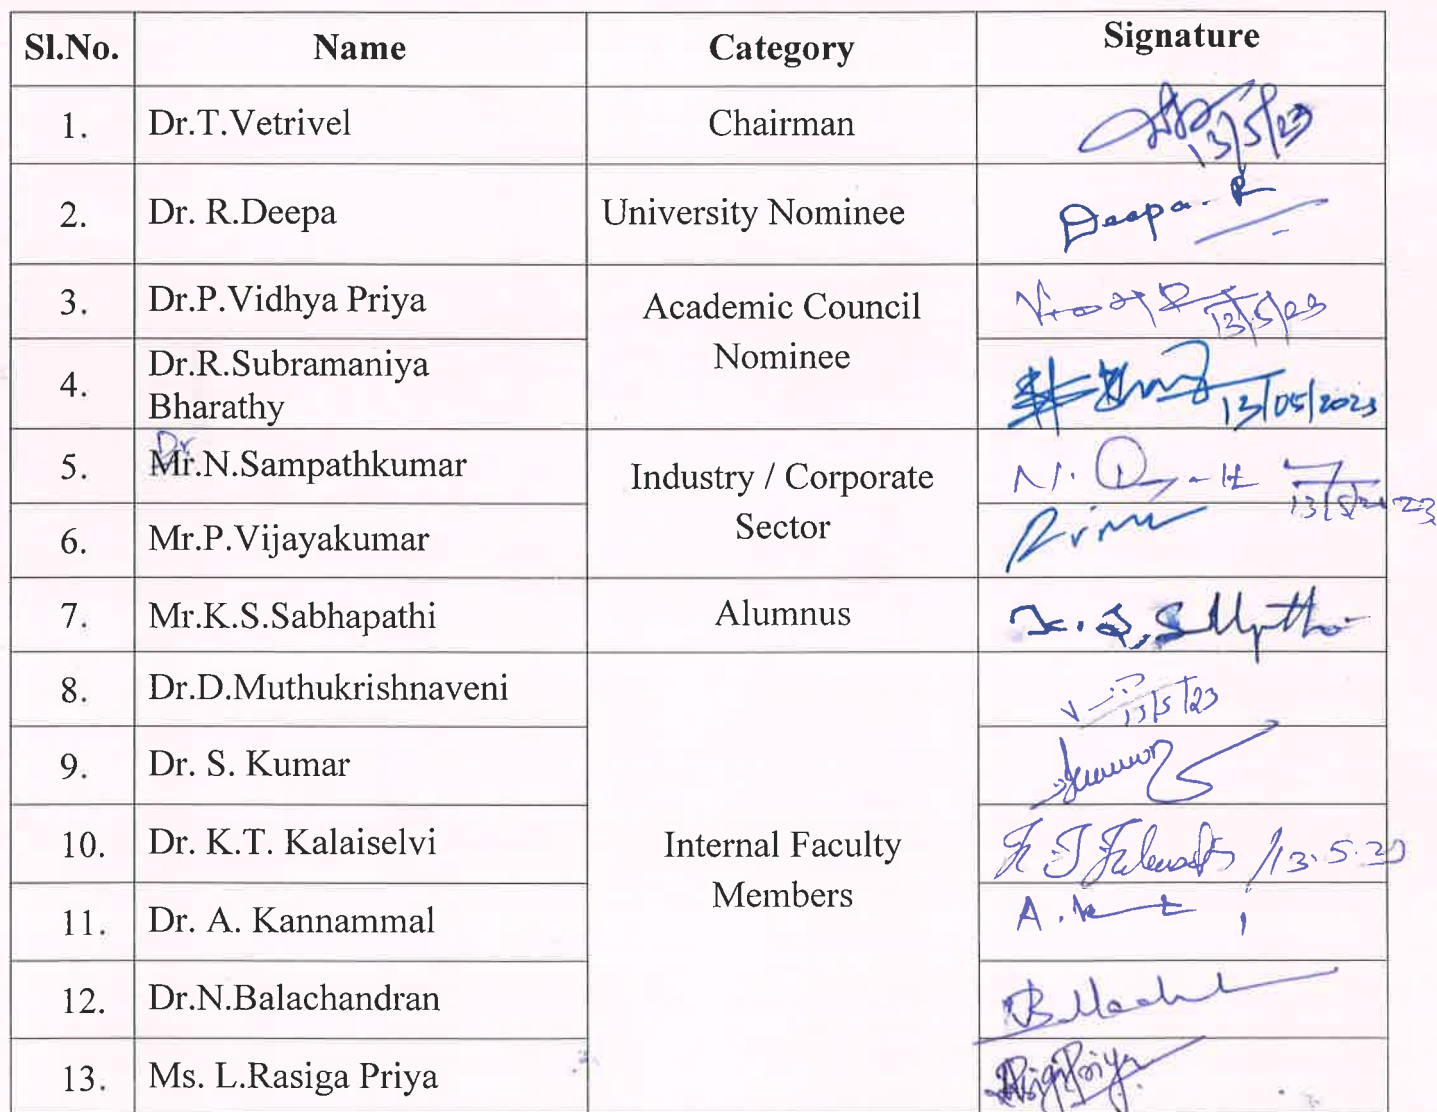 Sl.No. Name Category Signature
1. Dr.T.Vetrivel Chairman 13/5/23
2. Dr. R.Deepa University Nominee Deepa. R
3. Dr.P.Vidhya Priya Academic Council Nominee 13/5/23
4. Dr.R.Subramaniya
Bharathy 13/05/2023
Dr
5. Mr.N.Sampathkumar Industry / Corporate Sector N. 13/5/2023
6. Mr.P.Vijayakumar
7. Mr.K.S.Sabhapathi Alumnus
8. Dr.D.Muthukrishnaveni Internal Faculty Members 13/5/23
9. Dr. S. Kumar
10. Dr. K.T. Kalaiselvi 13.5.23
11. Dr. A. Kannammal A.
12. Dr.N.Balachandran
13. Ms. L.Rasiga Priya